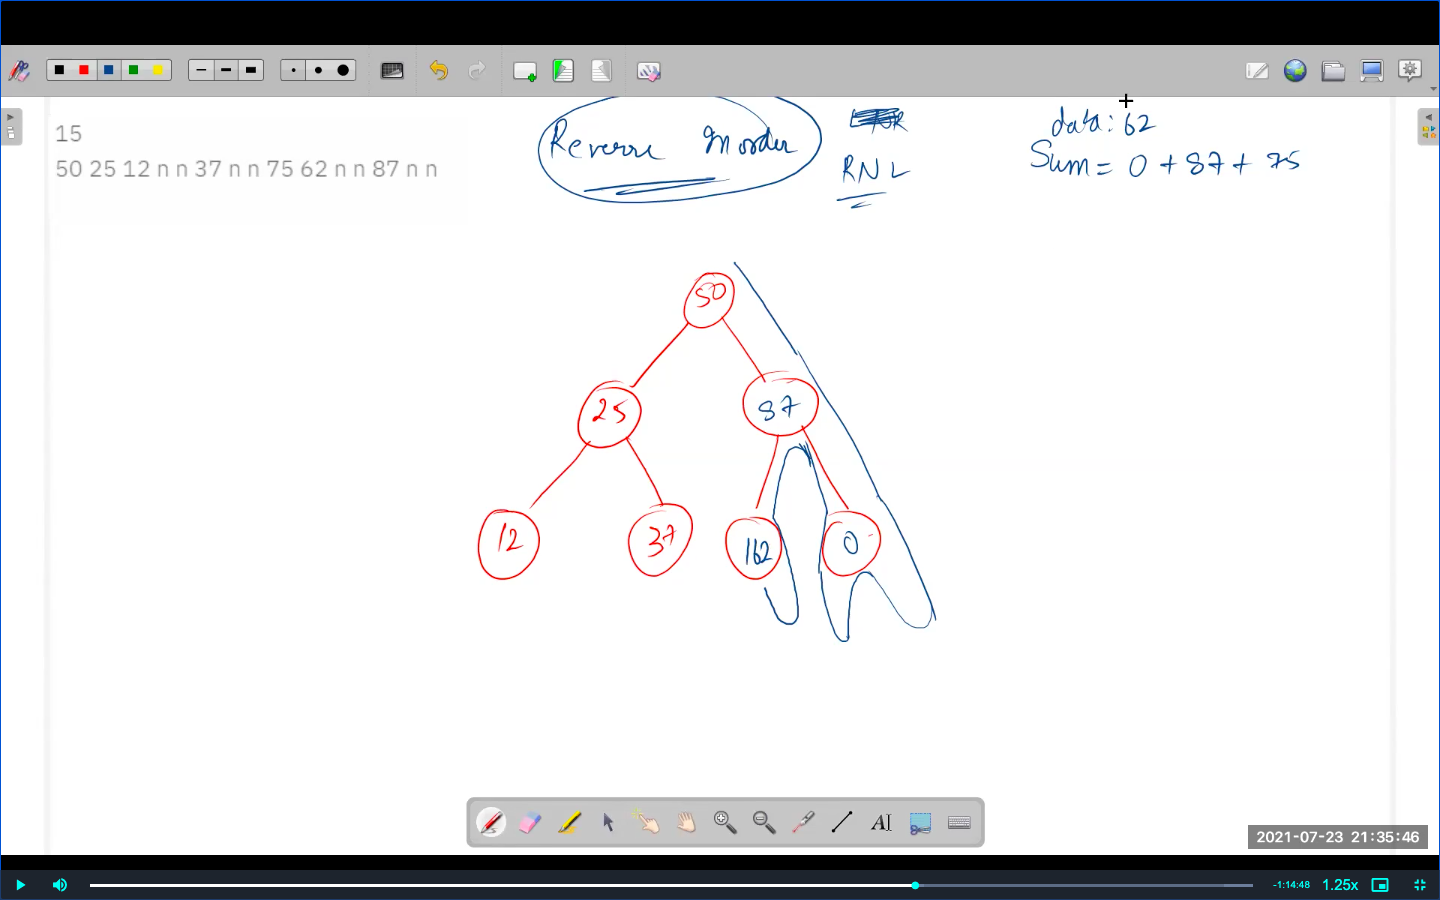 15
50 25 12 n n 37 n n 75 62 n n 87 n n
Reverse Inorder
RNL
data: 62
Sum = 0 + 87 + 75
50
25
87
12
37
162
0
AI
2021-07-23 21:35:46
-1:14:48
1.25x